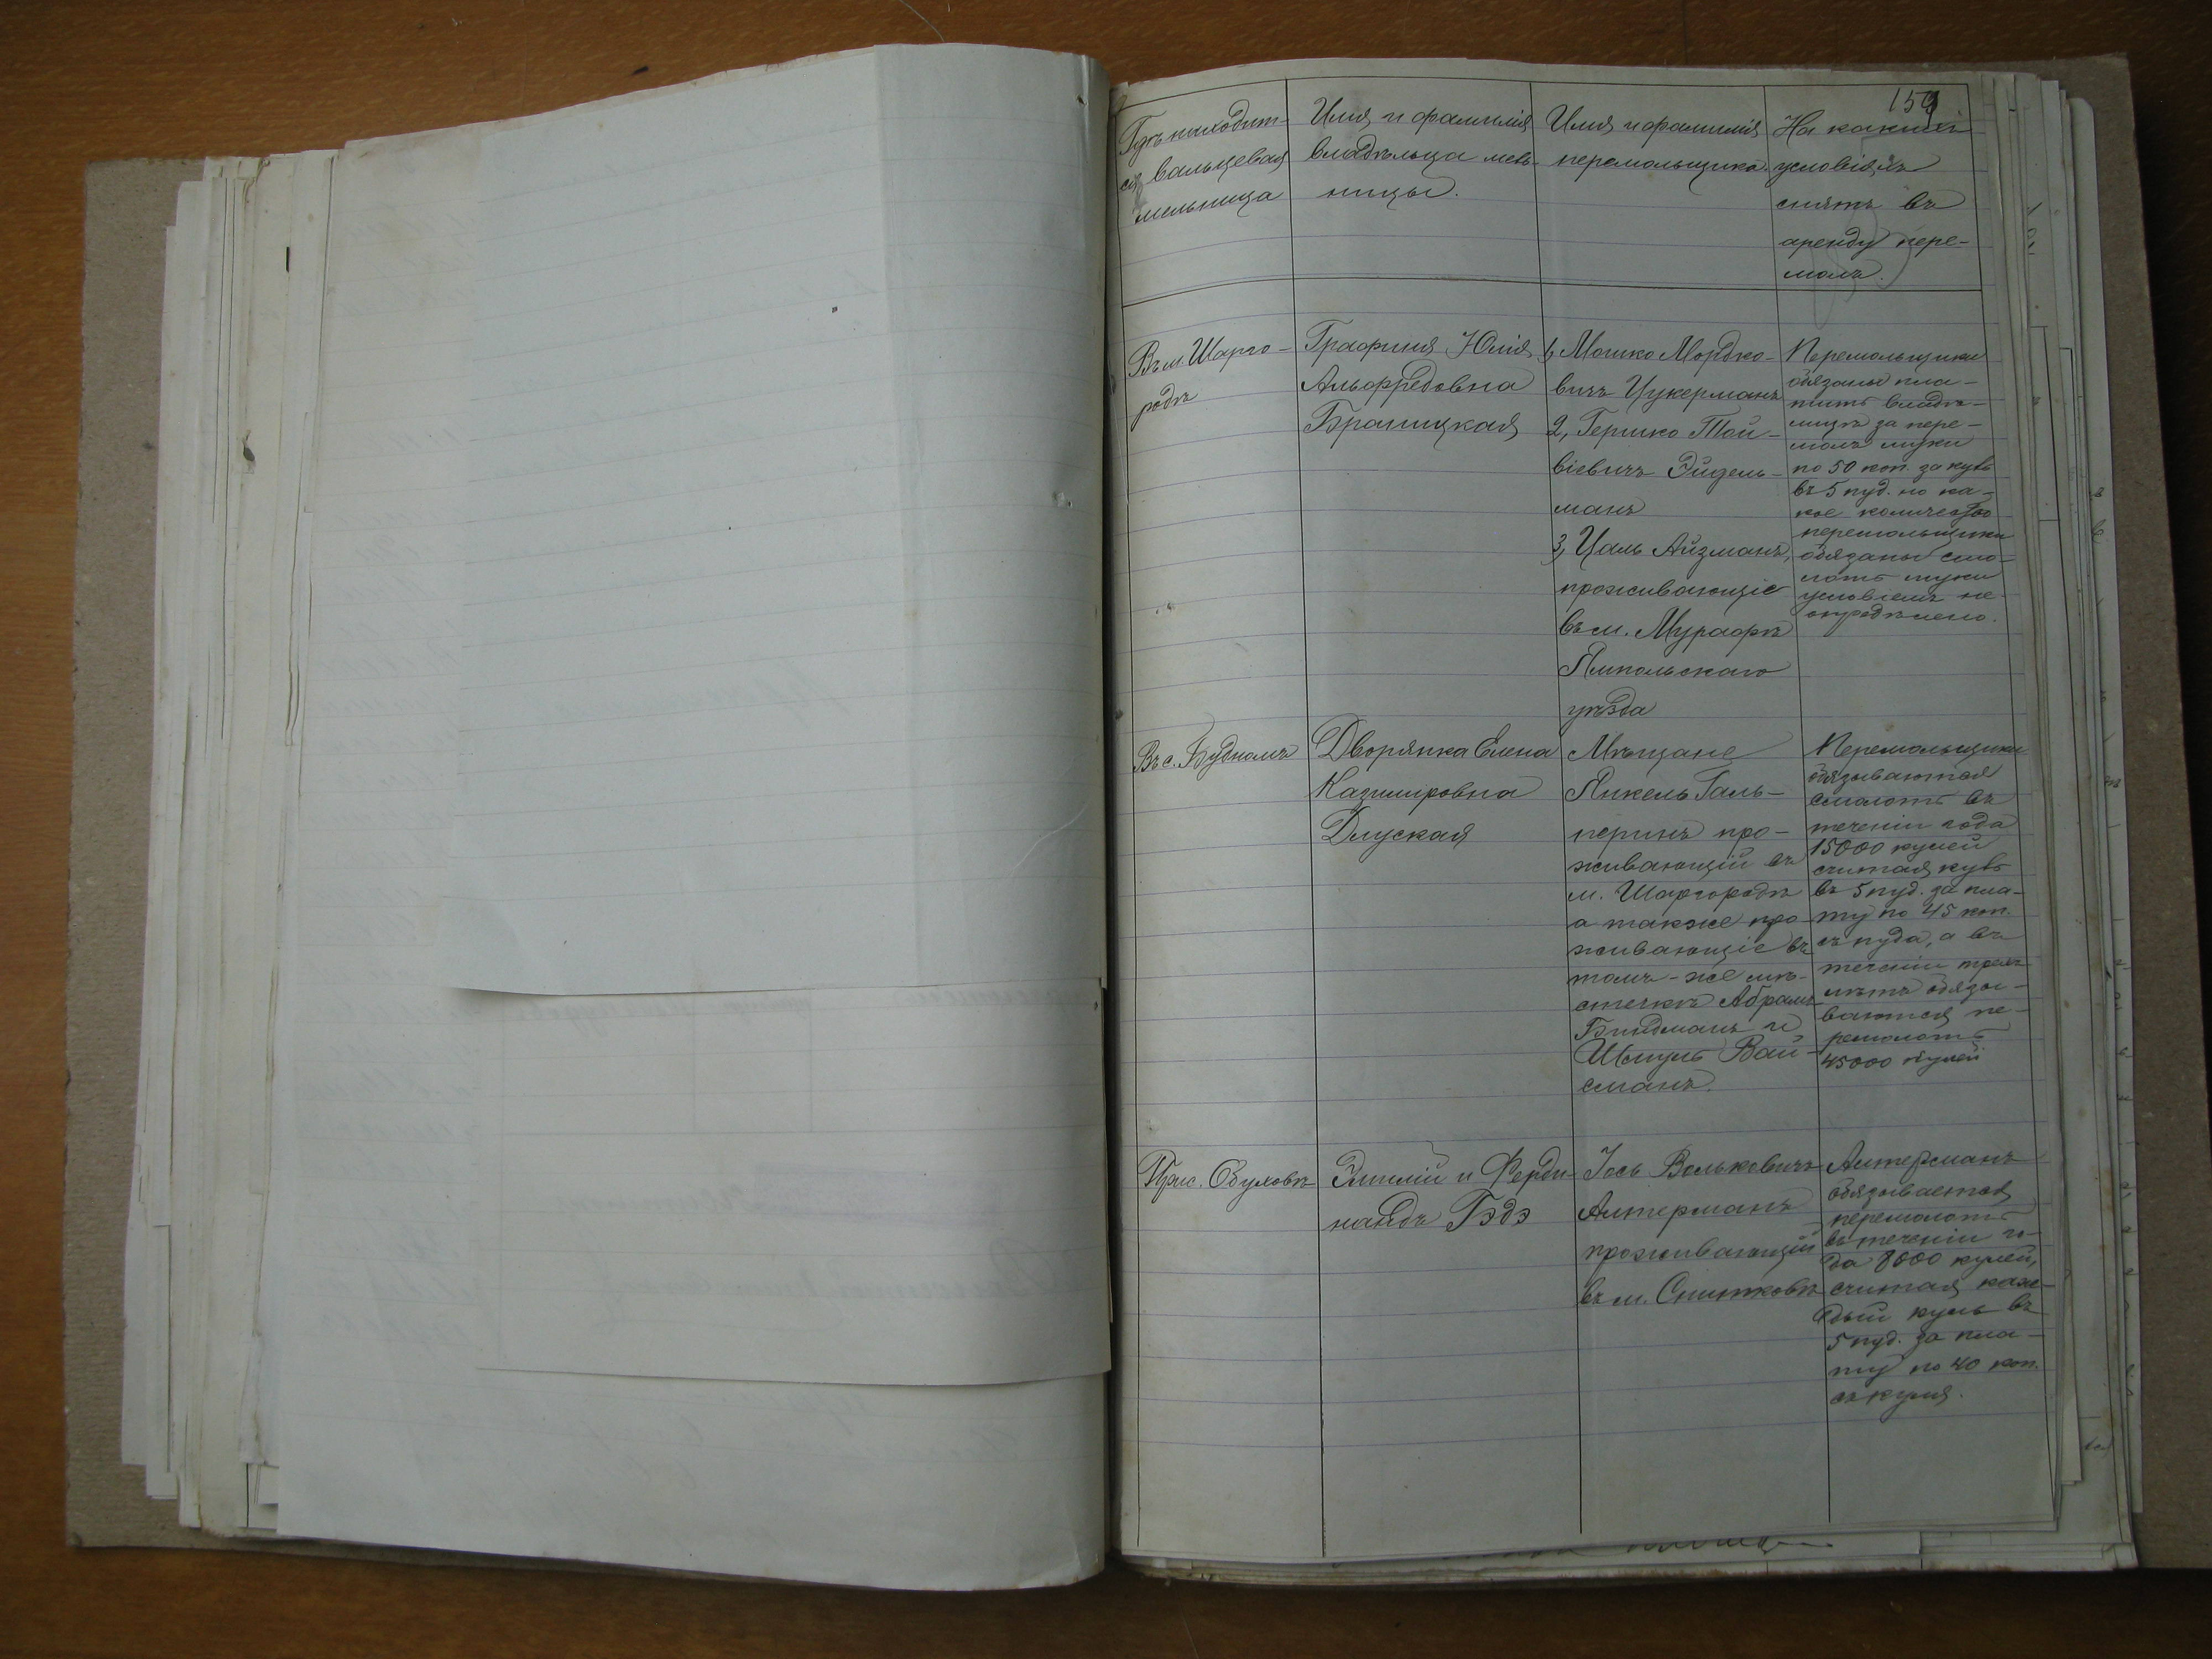 159
Гдѣ находит-
ся вальцевая
мельница
Имя и фамилія
владѣльца мель-
ницы.
Имя и фамилія
перемольщика.
На какихъ
условіяхъ
снятъ въ
аренду пере-
молъ.
Въ м. Шарго-
родѣ
Графиня Юлія
Альфредовна
Браницкая
1, Мошко Мордко-
вичъ Цукерманъ
2, Гершко Той-
віевичъ Эйдель-
манъ
3, Цаль Айзманъ,
проживающіе
въ м. Мурафѣ
Ямпольскаго
уѣзда
Перемольщики
обязаны пла-
тить владѣ-
лицѣ за пере-
молъ муки
по 50 коп. за куль
въ 5 пуд. но ка-
кое количество
перемольщики
обязаны смо-
лоть муки
условіемъ не
опредѣлено.
Въ с. Будномъ
Дворянка Елена
Казимировна
Длуская
Мѣщане
Янкель Галь-
перинъ про-
живающій въ
м. Шаргородѣ
а также про-
живающіе въ
томъ-же мѣ-
стечкѣ Абрамъ
Биндманъ и
Шмуль Вай-
сманъ.
Перемольщики
обязываются
смолоть въ
теченіи года
15000 кулей
считая куль
въ 5 пуд. за пла-
ту по 45 коп.
съ пуда, а въ
теченіи трехъ
лѣтъ обязы-
ваются пе-
ремолоть
45000 кулей
При с. Обуховѣ
Эмилій и Ферди-
нандъ Гэдэ
Іось Вольковичъ
Алтерманъ
проживающій
въ м. Снитковѣ
Алтерманъ
обязывается
перемолоть
въ теченіи го-
да 8000 кулей,
считая каж-
дый куль въ
5 пуд. за пла-
ту по 40 коп.
съ куля.